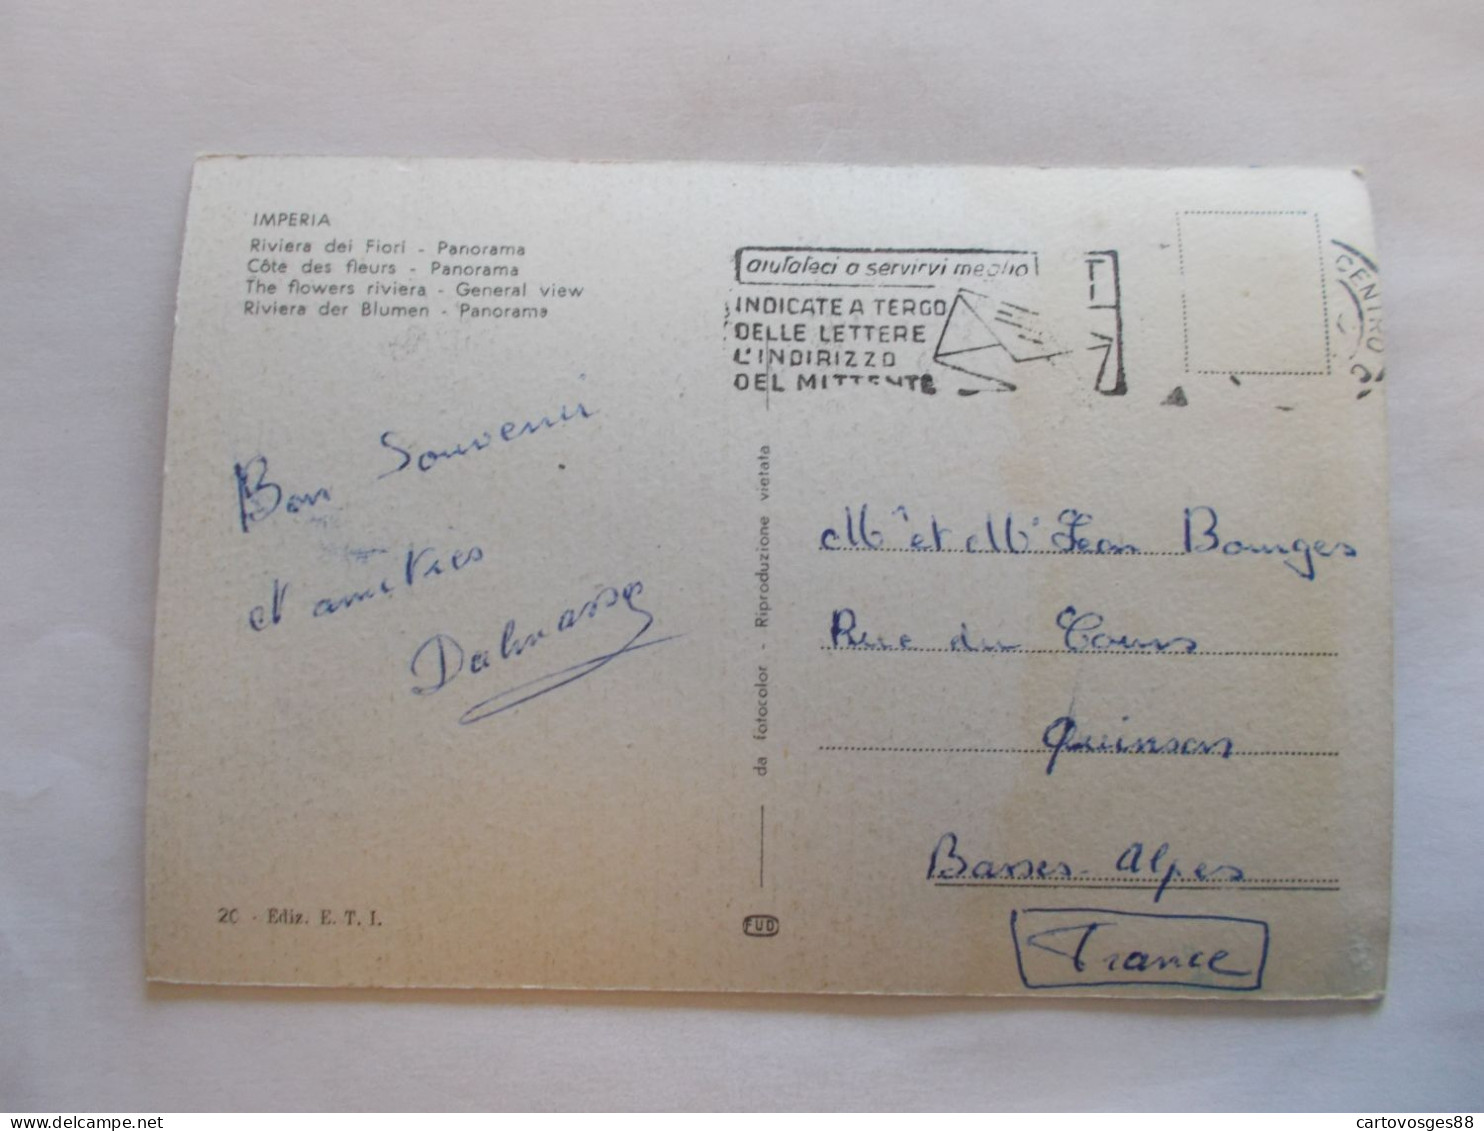 IMPERIA
Riviera dei Fiori - Panorama
Côte des fleurs - Panorama
The flowers riviera - General view
Riviera der Blumen - Panorama
aiutateci a servirvi meglio
INDICATE A TERGO
DELLE LETTERE
L'INDIRIZZO
DEL MITTENTE
CENTRO C
Bon Souvenir
et amitiés
Dalmasso
da fotocolor - Riproduzione vietata
Mr et Me Jean Bourges
Rue du Cours
Quinson
Basses-Alpes
France
20 - Ediz. E. T. I.
FUD
cartovosges88